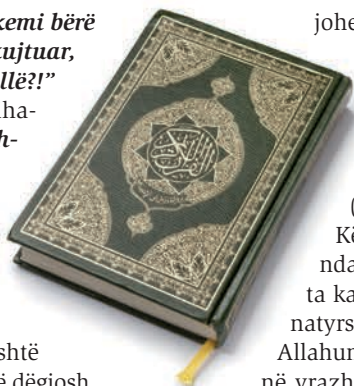 kemi bërë
kujtuar,
llë?!”
ha-
h-
shtë
ë dëgjosh
القرآن الكريم
johe
(
Kë
nda
ta ka
natyrs
Allahun
në vrazh